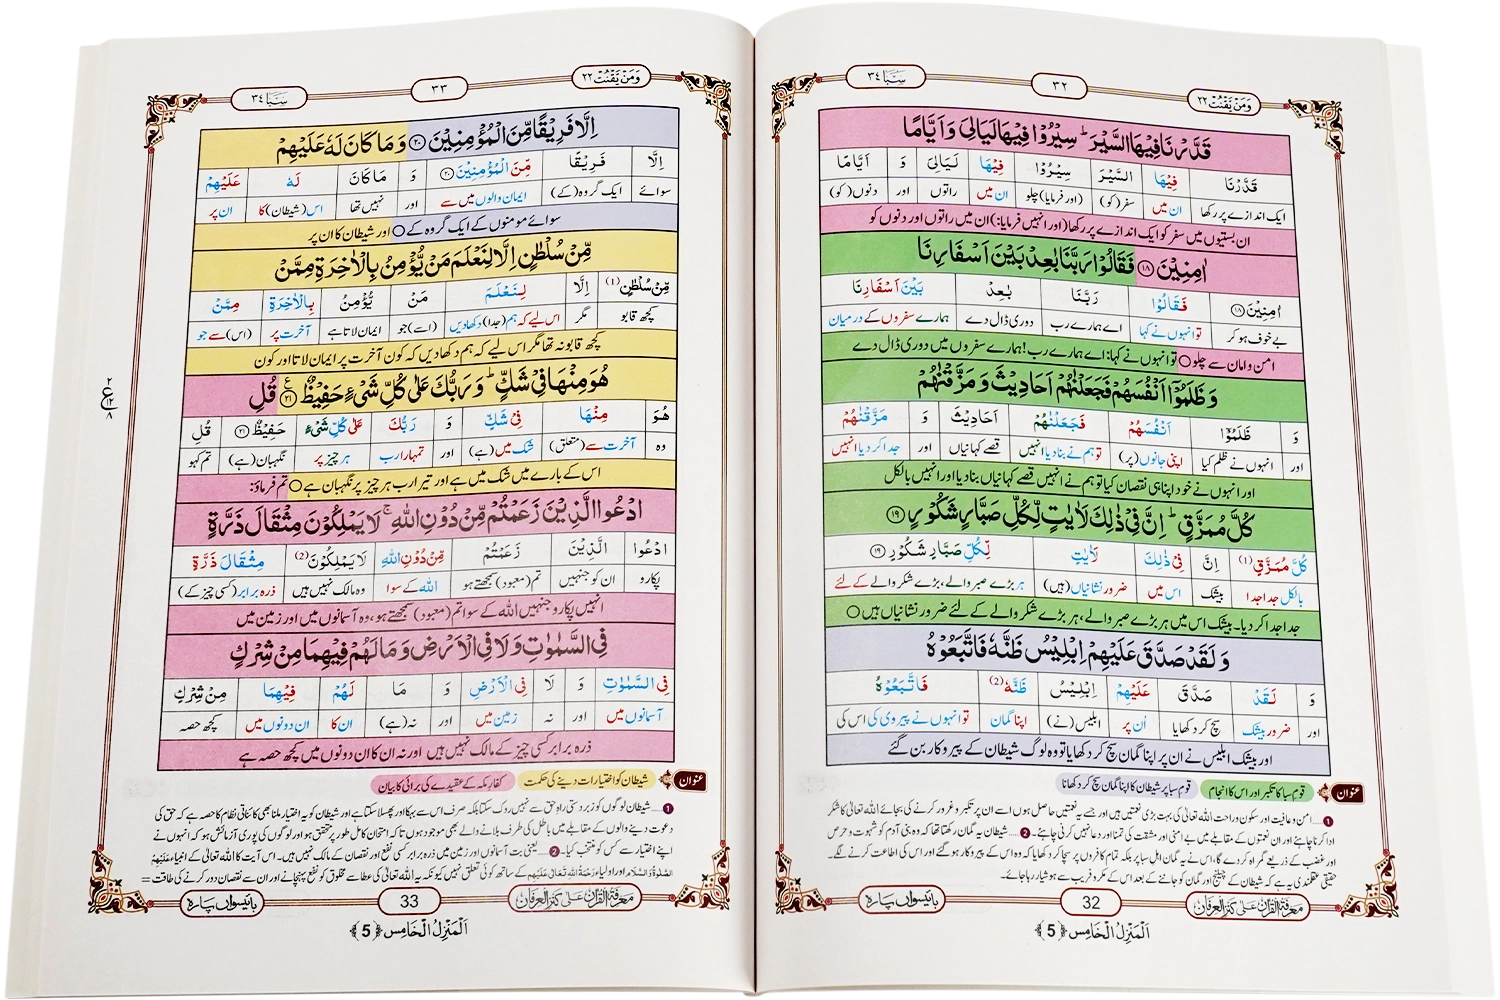 وَمَنْ يَّقْنُتْ ٢٢
٣٢
سَبَا ٣٤
قَدَّرْنَا فِيْهَا السَّيْرَ ؕ سِيْرُوْا فِيْهَا لَيَالِیَ وَ اَيَّامًا
قَدَّرْنَا فِيْهَا السَّيْرَ سِيْرُوْا فِيْهَا لَيَالِیَ وَ اَيَّامًا
ایک اندازے پر رکھا ان میں سفر (کو) (اور فرمایا) چلو ان میں راتوں اور دنوں (کو)
ان بستیوں میں سفر کو ایک اندازے پر رکھا (اور انہیں فرمایا:) ان میں راتوں اور دنوں کو
اٰمِنِيْنَ ۝۱۸ فَقَالُوْا رَبَّنَا بٰعِدْ بَيْنَ اَسْفَارِنَا
اٰمِنِيْنَ ۝۱۸ فَقَالُوْا رَبَّنَا بٰعِدْ بَيْنَ اَسْفَارِنَا
بے خوف ہو کر تو انہوں نے کہا اے ہمارے رب دوری ڈال دے ہمارے سفروں کے درمیان
امن و امان سے چلو ○ تو انہوں نے کہا: اے ہمارے رب! ہمارے سفروں میں دوری ڈال دے
وَ ظَلَمُوْۤا اَنْفُسَهُمْ فَجَعَلْنٰهُمْ اَحَادِيْثَ وَ مَزَّقْنٰهُمْ
وَ ظَلَمُوْۤا اَنْفُسَهُمْ فَجَعَلْنٰهُمْ اَحَادِيْثَ وَ مَزَّقْنٰهُمْ
اور انہوں نے ظلم کیا اپنی جانوں (پر) تو ہم نے بنا دیا انہیں قصے کہانیاں اور جدا کر دیا انہیں
اور انہوں نے خود اپنا ہی نقصان کیا تو ہم نے انہیں قصے کہانیاں بنا دیا اور انہیں بالکل
كُلَّ مُمَزَّقٍ ؕ اِنَّ فِیْ ذٰلِكَ لَاٰيٰتٍ لِّكُلِّ صَبَّارٍ شَكُوْرٍ ۝۱۹
كُلَّ مُمَزَّقٍ (1) اِنَّ فِیْ ذٰلِكَ لَاٰيٰتٍ لِّكُلِّ صَبَّارٍ شَكُوْرٍ ۝۱۹
بالکل جدا جدا بیشک اس میں ضرور نشانیاں (ہیں) ہر بڑے صبر والے، بڑے شکر والے کے لئے
جدا جدا کر دیا۔ بیشک اس میں ہر بڑے صبر والے، ہر بڑے شکر والے کے لئے ضرور نشانیاں ہیں ○
وَ لَقَدْ صَدَّقَ عَلَيْهِمْ اِبْلِيْسُ ظَنَّهٗ فَاتَّبَعُوْهُ
وَ لَقَدْ صَدَّقَ عَلَيْهِمْ اِبْلِيْسُ ظَنَّهٗ (2) فَاتَّبَعُوْهُ
اور ضرور بیشک سچ کر دکھایا اُن پر ابلیس (نے) اپنا گمان تو انہوں نے پیروی کی اس کی
اور بیشک ابلیس نے ان پر اپنا گمان سچ کر دکھایا تو وہ لوگ شیطان کے پیروکار بن گئے
عنوان قوم سبا کا تکبر اور اس کا انجام قوم سبا پر شیطان کا اپنا گمان سچ کر دکھانا
1 ..... امن و عافیت اور سکون و راحت اللہ تعالیٰ کی بہت بڑی نعمتیں ہیں اور جسے یہ نعمتیں حاصل ہوں اسے ان پر تکبر و غرور کرنے کی بجائے اللہ تعالیٰ کا شکر
ادا کرنا چاہئے اور ان نعمتوں کے مقابلے میں بے امنی اور مشقت کی تمنا اور دعا نہیں کرنی چاہئے۔ 2 ..... شیطان یہ گمان رکھتا تھا کہ وہ بنی آدم کو شہوت و حرص
اور غضب کے ذریعے گمراہ کر دے گا، اس نے یہ گمان اہل سبا پر بلکہ تمام کافروں پر سچا کر دکھایا کہ وہ اس کے پیروکار ہو گئے اور اس کی اطاعت کرنے لگے۔
حقیقی عقلمندی یہ ہے کہ شیطان کے چیلنج اور گمان کو جاننے کے بعد اس کے مکر و فریب سے ہوشیار رہا جائے۔
معرفۃ القرآن علی کنز العرفان
32
بائیسواں پارہ
اَلْمَنْزِلُ الْخَامِس ﴿5﴾
وَمَنْ يَّقْنُتْ ٢٢
٣٣
سَبَا ٣٤
اِلَّا فَرِيْقًا مِّنَ الْمُؤْمِنِيْنَ ۝۲۰ وَ مَا كَانَ لَهٗ عَلَيْهِمْ
اِلَّا فَرِيْقًا مِّنَ الْمُؤْمِنِيْنَ ۝۲۰ وَ مَا كَانَ لَهٗ عَلَيْهِمْ
سوائے ایک گروہ (کے) ایمان والوں میں سے اور نہیں تھا اس (شیطان) کا ان پر
سوائے مومنوں کے ایک گروہ کے ○ اور شیطان کا ان پر
مِّنْ سُلْطٰنٍ اِلَّا لِنَعْلَمَ مَنْ يُّؤْمِنُ بِالْاٰخِرَةِ مِمَّنْ
مِّنْ سُلْطٰنٍ (1) اِلَّا لِنَعْلَمَ مَنْ يُّؤْمِنُ بِالْاٰخِرَةِ مِمَّنْ
کچھ قابو مگر اس لیے کہ ہم (جدا) دکھا دیں (اسے) جو ایمان لاتا ہے آخرت پر (اس) سے جو
کچھ قابو نہ تھا مگر اس لیے کہ ہم دکھا دیں کہ کون آخرت پر ایمان لاتا اور کون
هُوَ مِنْهَا فِیْ شَكٍّ ؕ وَ رَبُّكَ عَلٰى كُلِّ شَیْءٍ حَفِيْظٌ ۝۲۱ع قُلِ
هُوَ مِنْهَا فِیْ شَكٍّ وَ رَبُّكَ عَلٰى كُلِّ شَیْءٍ حَفِيْظٌ ۝۲۱ قُلِ
وہ آخرت سے (متعلق) شک میں (ہے) اور تمہارا رب ہر چیز پر نگہبان (ہے) تم کہو
اس کے بارے میں شک میں ہے اور تیرا رب ہر چیز پر نگہبان ہے ○ تم فرماؤ:
٢ ع ١٢ ٨
ادْعُوا الَّذِيْنَ زَعَمْتُمْ مِّنْ دُوْنِ اللّٰهِ ۚ لَا يَمْلِكُوْنَ مِثْقَالَ ذَرَّةٍ
ادْعُوا الَّذِيْنَ زَعَمْتُمْ مِّنْ دُوْنِ اللّٰهِ لَا يَمْلِكُوْنَ (2) مِثْقَالَ ذَرَّةٍ
پکارو ان کو جنہیں تم (معبود) سمجھتے ہو اللہ کے سوا وہ مالک نہیں ہیں ذرہ برابر (کسی چیز کے)
انہیں پکارو جنہیں اللہ کے سوا تم (معبود) سمجھتے ہو، وہ آسمانوں میں اور زمین میں
فِی السَّمٰوٰتِ وَ لَا فِی الْاَرْضِ وَ مَا لَهُمْ فِيْهِمَا مِنْ شِرْكٍ
فِی السَّمٰوٰتِ وَ لَا فِی الْاَرْضِ وَ مَا لَهُمْ فِيْهِمَا مِنْ شِرْكٍ
آسمانوں میں اور نہ زمین میں اور نہ (ہے) ان کا ان دونوں میں کچھ حصہ
ذرہ برابر کسی چیز کے مالک نہیں ہیں اور نہ ان کا ان دونوں میں کچھ حصہ ہے
عنوان شیطان کو اختیارات دینے کی حکمت کفار مکہ کے عقیدے کی برائی کا بیان
1 ..... شیطان لوگوں کو زبردستی راہِ حق سے نہیں روک سکتا بلکہ صرف اس سے بہکا اور پھسلا سکتا ہے اور شیطان کو یہ اختیار ملنا بھی کائناتی نظام کا حصہ ہے کہ حق کی
دعوت دینے والوں کے مقابلے میں باطل کی طرف بلانے والے بھی موجود ہوں تاکہ امتحان کامل طور پر متحقق ہو اور لوگوں کی پوری آزمائش ہو کہ انہوں نے
اپنے اختیار سے کس کو منتخب کیا۔ 2 ..... یعنی بت آسمانوں اور زمین میں ذرہ برابر کسی نفع اور نقصان کے مالک نہیں ہیں۔ اس آیت کا اللہ تعالیٰ کے انبیاء عَلَيْهِمُ
الصَّلٰوۃُ وَالسَّلَام اور اولیاء رَحْمَۃُ اللہِ تَعَالٰی عَلَیْہِم کے ساتھ کوئی تعلق نہیں کیونکہ یہ اللہ تعالیٰ کی عطا سے مخلوق کو نفع پہنچانے اور ان سے نقصان دور کرنے کی طاقت =
معرفۃ القرآن علی کنز العرفان
33
بائیسواں پارہ
اَلْمَنْزِلُ الْخَامِس ﴿5﴾